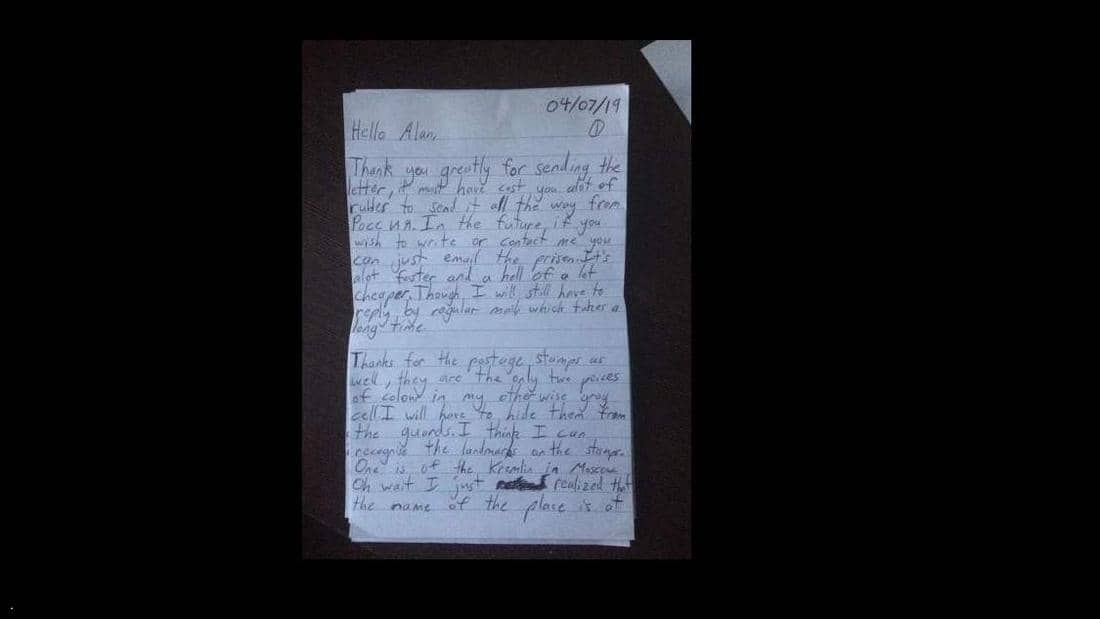 04/07/19
1
Hello Alan,
Thank you greatly for sending the
letter, it must have cost you alot of
rubles to send it all the way from
Росс ия. In the future, if you
wish to write or contact me you
can just email the prison. It's
alot faster and a hell of a lot
cheaper. Though, I will still have to
reply by regular mail which takes a
long time.
Thanks for the postage stamps as
well, they are the only two peices
of colour in my otherwise gray
cell I will have to hide them from
the guards. I think I can
recognise the landmarks on the stamps.
One is of the Kremlin in Moscow
Oh wait I just realized that
the name of the place is at